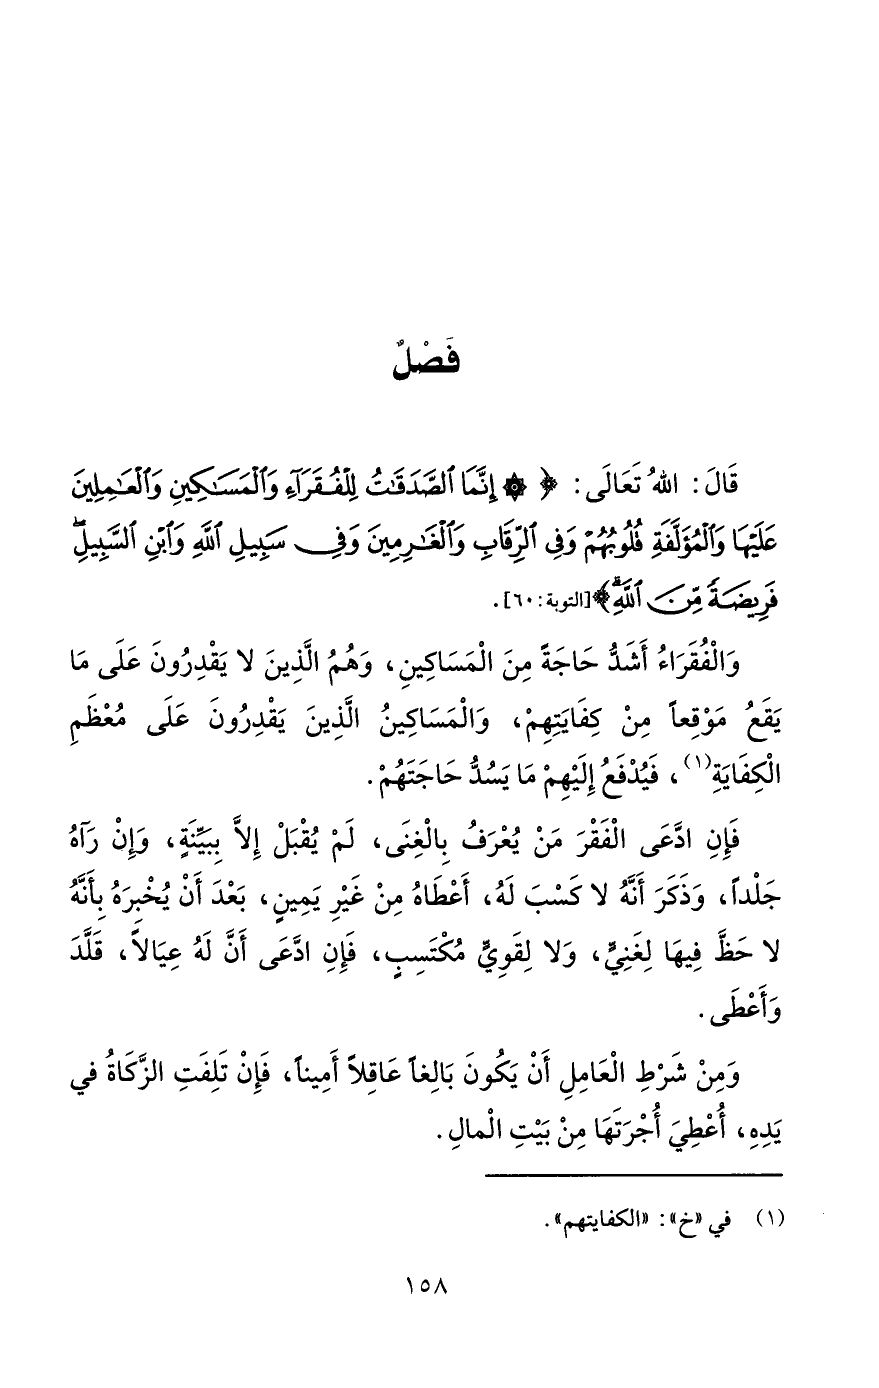 فَصْلٌ
قَالَ: اللهُ تَعَالَى: ﴿ ۞ إِنَّمَا ٱلصَّدَقَٰتُ لِلْفُقَرَآءِ وَٱلْمَسَٰكِينِ وَٱلْعَٰمِلِينَ
عَلَيْهَا وَٱلْمُؤَلَّفَةِ قُلُوبُهُمْ وَفِى ٱلرِّقَابِ وَٱلْغَٰرِمِينَ وَفِى سَبِيلِ ٱللَّهِ وَٱبْنِ ٱلسَّبِيلِۖ
فَرِيضَةً مِّنَ ٱللَّهِۗ﴾ [التوبة: ٦٠].
وَالْفُقَرَاءُ أَشَدُّ حَاجَةً مِنَ الْمَسَاكِينِ، وَهُمُ الَّذِينَ لا يَقْدِرُونَ عَلَى مَا
يَقَعُ مَوْقِعاً مِنْ كِفَايَتِهِمْ، وَالْمَسَاكِينُ الَّذِينَ يَقْدِرُونَ عَلَى مُعْظَمِ
الْكِفَايَةِ(١)، فَيُدْفَعُ إِلَيْهِمْ مَا يَسُدُّ حَاجَتَهُمْ.
فَإِنِ ادَّعَى الْفَقْرَ مَنْ يُعْرَفُ بِالْغِنَى، لَمْ يُقْبَلْ إِلاَّ بِبَيِّنَةٍ، وَإِنْ رَآهُ
جَلْداً، وَذَكَرَ أَنَّهُ لا كَسْبَ لَهُ، أَعْطَاهُ مِنْ غَيْرِ يَمِينٍ، بَعْدَ أَنْ يُخْبِرَهُ بِأَنَّهُ
لا حَظَّ فِيهَا لِغَنِيٍّ، وَلا لِقَوِيٍّ مُكْتَسِبٍ، فَإِنِ ادَّعَى أَنَّ لَهُ عِيَالاً، قَلَّدَ
وَأَعْطَى.
وَمِنْ شَرْطِ الْعَامِلِ أَنْ يَكُونَ بَالِغاً عَاقِلاً أَمِيناً، فَإِنْ تَلِفَتِ الزَّكَاةُ في
يَدِهِ، أُعْطِيَ أُجْرَتَهَا مِنْ بَيْتِ الْمالِ.
(١) في «خ»: «الكفايتهم».
١٥٨